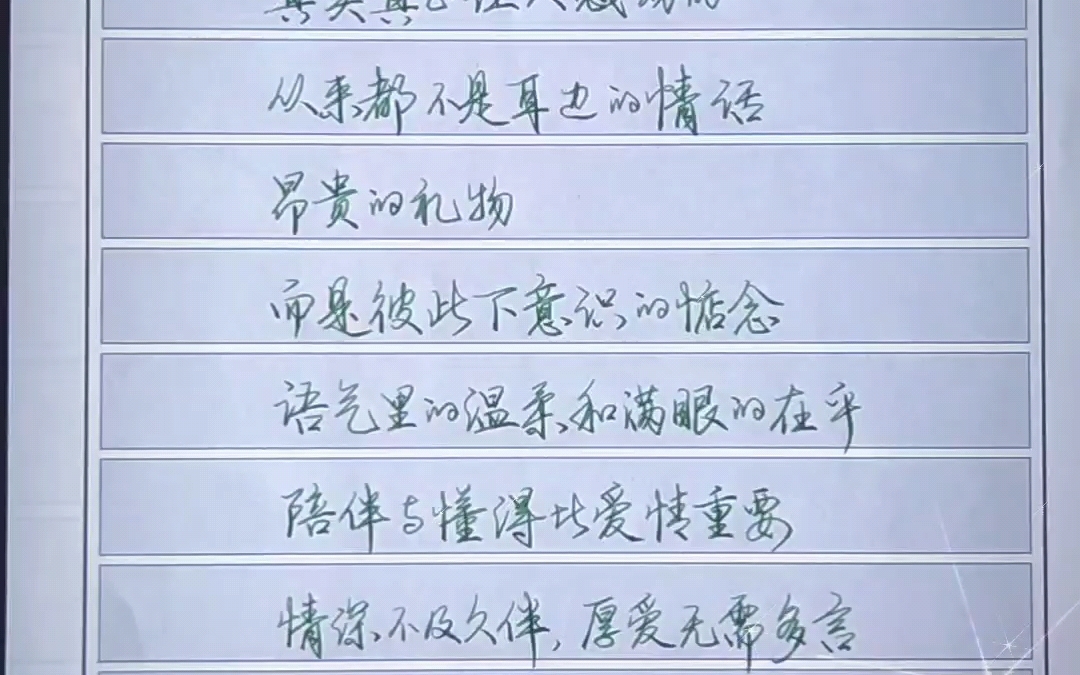 从来都不是耳边的情话
昂贵的礼物
而是彼此下意识的惦念
语气里的温柔和满眼的在乎
陪伴与懂得比爱情重要
情深不及久伴,厚爱无需多言